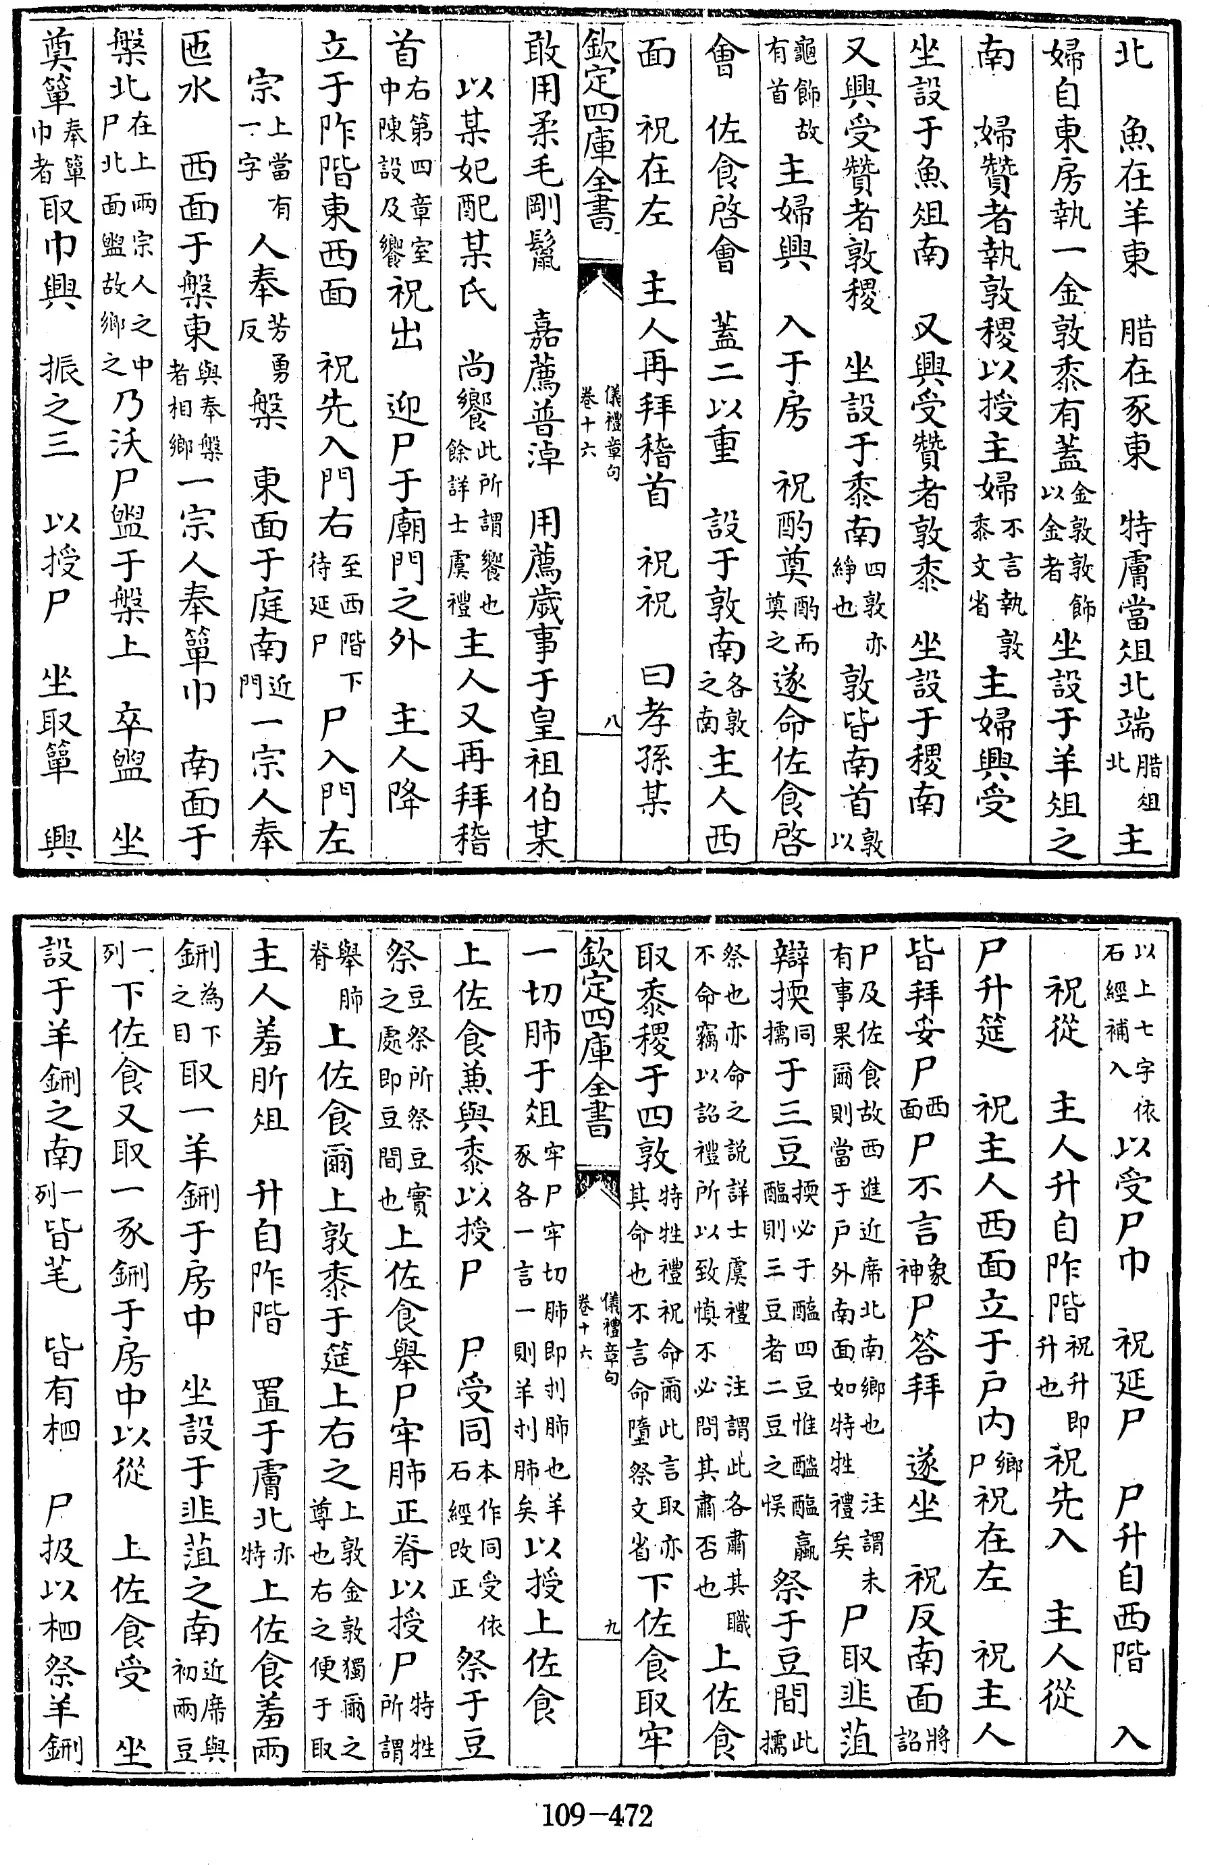 北　魚在羊東　腊在豕東　特膚當俎北端腊俎北主
婦自東房執一金敦黍有蓋金敦敦飾以金者坐設于羊俎之
南　婦贊者執敦稷以授主婦不言執敦黍文省主婦興受
坐設于魚俎南　又興受贊者敦黍　坐設于稷南
又興受贊者敦稷　坐設于黍南四敦亦綪也敦皆南首敦以
龜飾故有首主婦興　入于房　祝酌奠酌而奠之遂命佐食啓
會　佐食啓會　蓋二以重　設于敦南各敦之南主人西
面　祝在左　主人再拜稽首　祝祝　曰孝孫某
欽定四庫全書　儀禮章句卷十六　八
敢用柔毛剛鬣　嘉薦普淖　用薦歲事于皇祖伯某
以某妃配某氏　尚饗此所謂饗也餘詳士虞禮主人又再拜稽
首右第四章室中陳設及饗祝出　迎尸于廟門之外　主人降
立于阼階東西面　祝先入門右至西階下待延尸尸入門左
宗上當有一字人奉芳勇反槃　東面于庭南近門一宗人奉
匜水　西面于槃東與奉槃者相鄉一宗人奉簞巾　南面于
槃北在上兩宗人之中尸北面盥故鄉之乃沃尸盥于槃上　卒盥　坐
奠簞奉簞巾者取巾興　振之三　以授尸　坐取簞　興
以上七字依石經補入以受尸巾　祝延尸　尸升自西階　入
祝從　主人升自阼階祝升即升也祝先入　主人從
尸升筵　祝主人西面立于戶內鄉尸祝在左　祝主人
皆拜妥尸西面尸不言象神尸答拜　遂坐　祝反南面將詔
尸及佐食故西進近席北南鄉也　注謂未有事果爾則當于戶外南面如特牲禮矣尸取韭菹
辯㨎同擩于三豆㨎必于醢四豆惟醓醢蠃醢則三豆者二豆之悞祭于豆間此擩
祭也亦命之說詳士虞禮　注謂此各肅其職不命竊以詔禮所以致慎不必問其肅否也上佐食
取黍稷于四敦特牲禮祝命爾此言取亦其命也不言命墮祭文省下佐食取牢
欽定四庫全書　儀禮章句卷十六　九
一切肺于俎牢尸牢切肺即刌肺也羊豕各一言一則羊刌肺矣以授上佐食
上佐食兼與黍以授尸　尸受同本作同受依石經改正祭于豆
祭豆祭所祭豆實之處即豆間也上佐食舉尸牢肺正脊以授尸特牲所謂
舉肺脊上佐食爾上敦黍于筵上右之上敦金敦獨爾之尊也右之便于取
主人羞肵俎　升自阼階　置于膚北亦特上佐食羞兩
鉶為下之目取一羊鉶于房中　坐設于韭菹之南近席與初兩豆
一列下佐食又取一豕鉶于房中以從　上佐食受　坐
設于羊鉶之南一列皆芼　皆有柶　尸扱以柶祭羊鉶
109-472